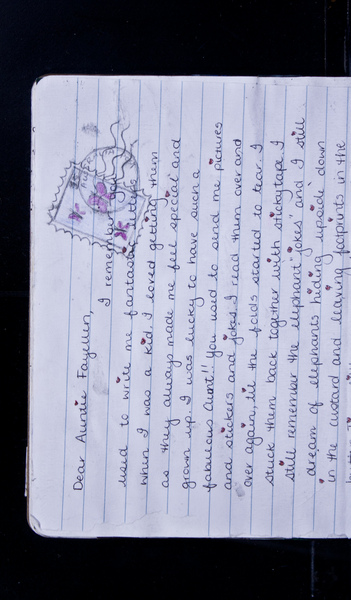 Dear Auntie Fayellen,
I remember you
used to write me fantastic letters
when I was a kid. I loved getting them
as they always made me feel special and
grown up. I was lucky to have such a
fabulous Aunt!! You used to send me pictures
and stickers and jokes. I read them over and
over again, til the folds started to tear. I
stuck them back together with stickytape. I
still remember the elephant "jokes" and I still
dream of elephants hiding upside down
in the custard and leaving footprints in the